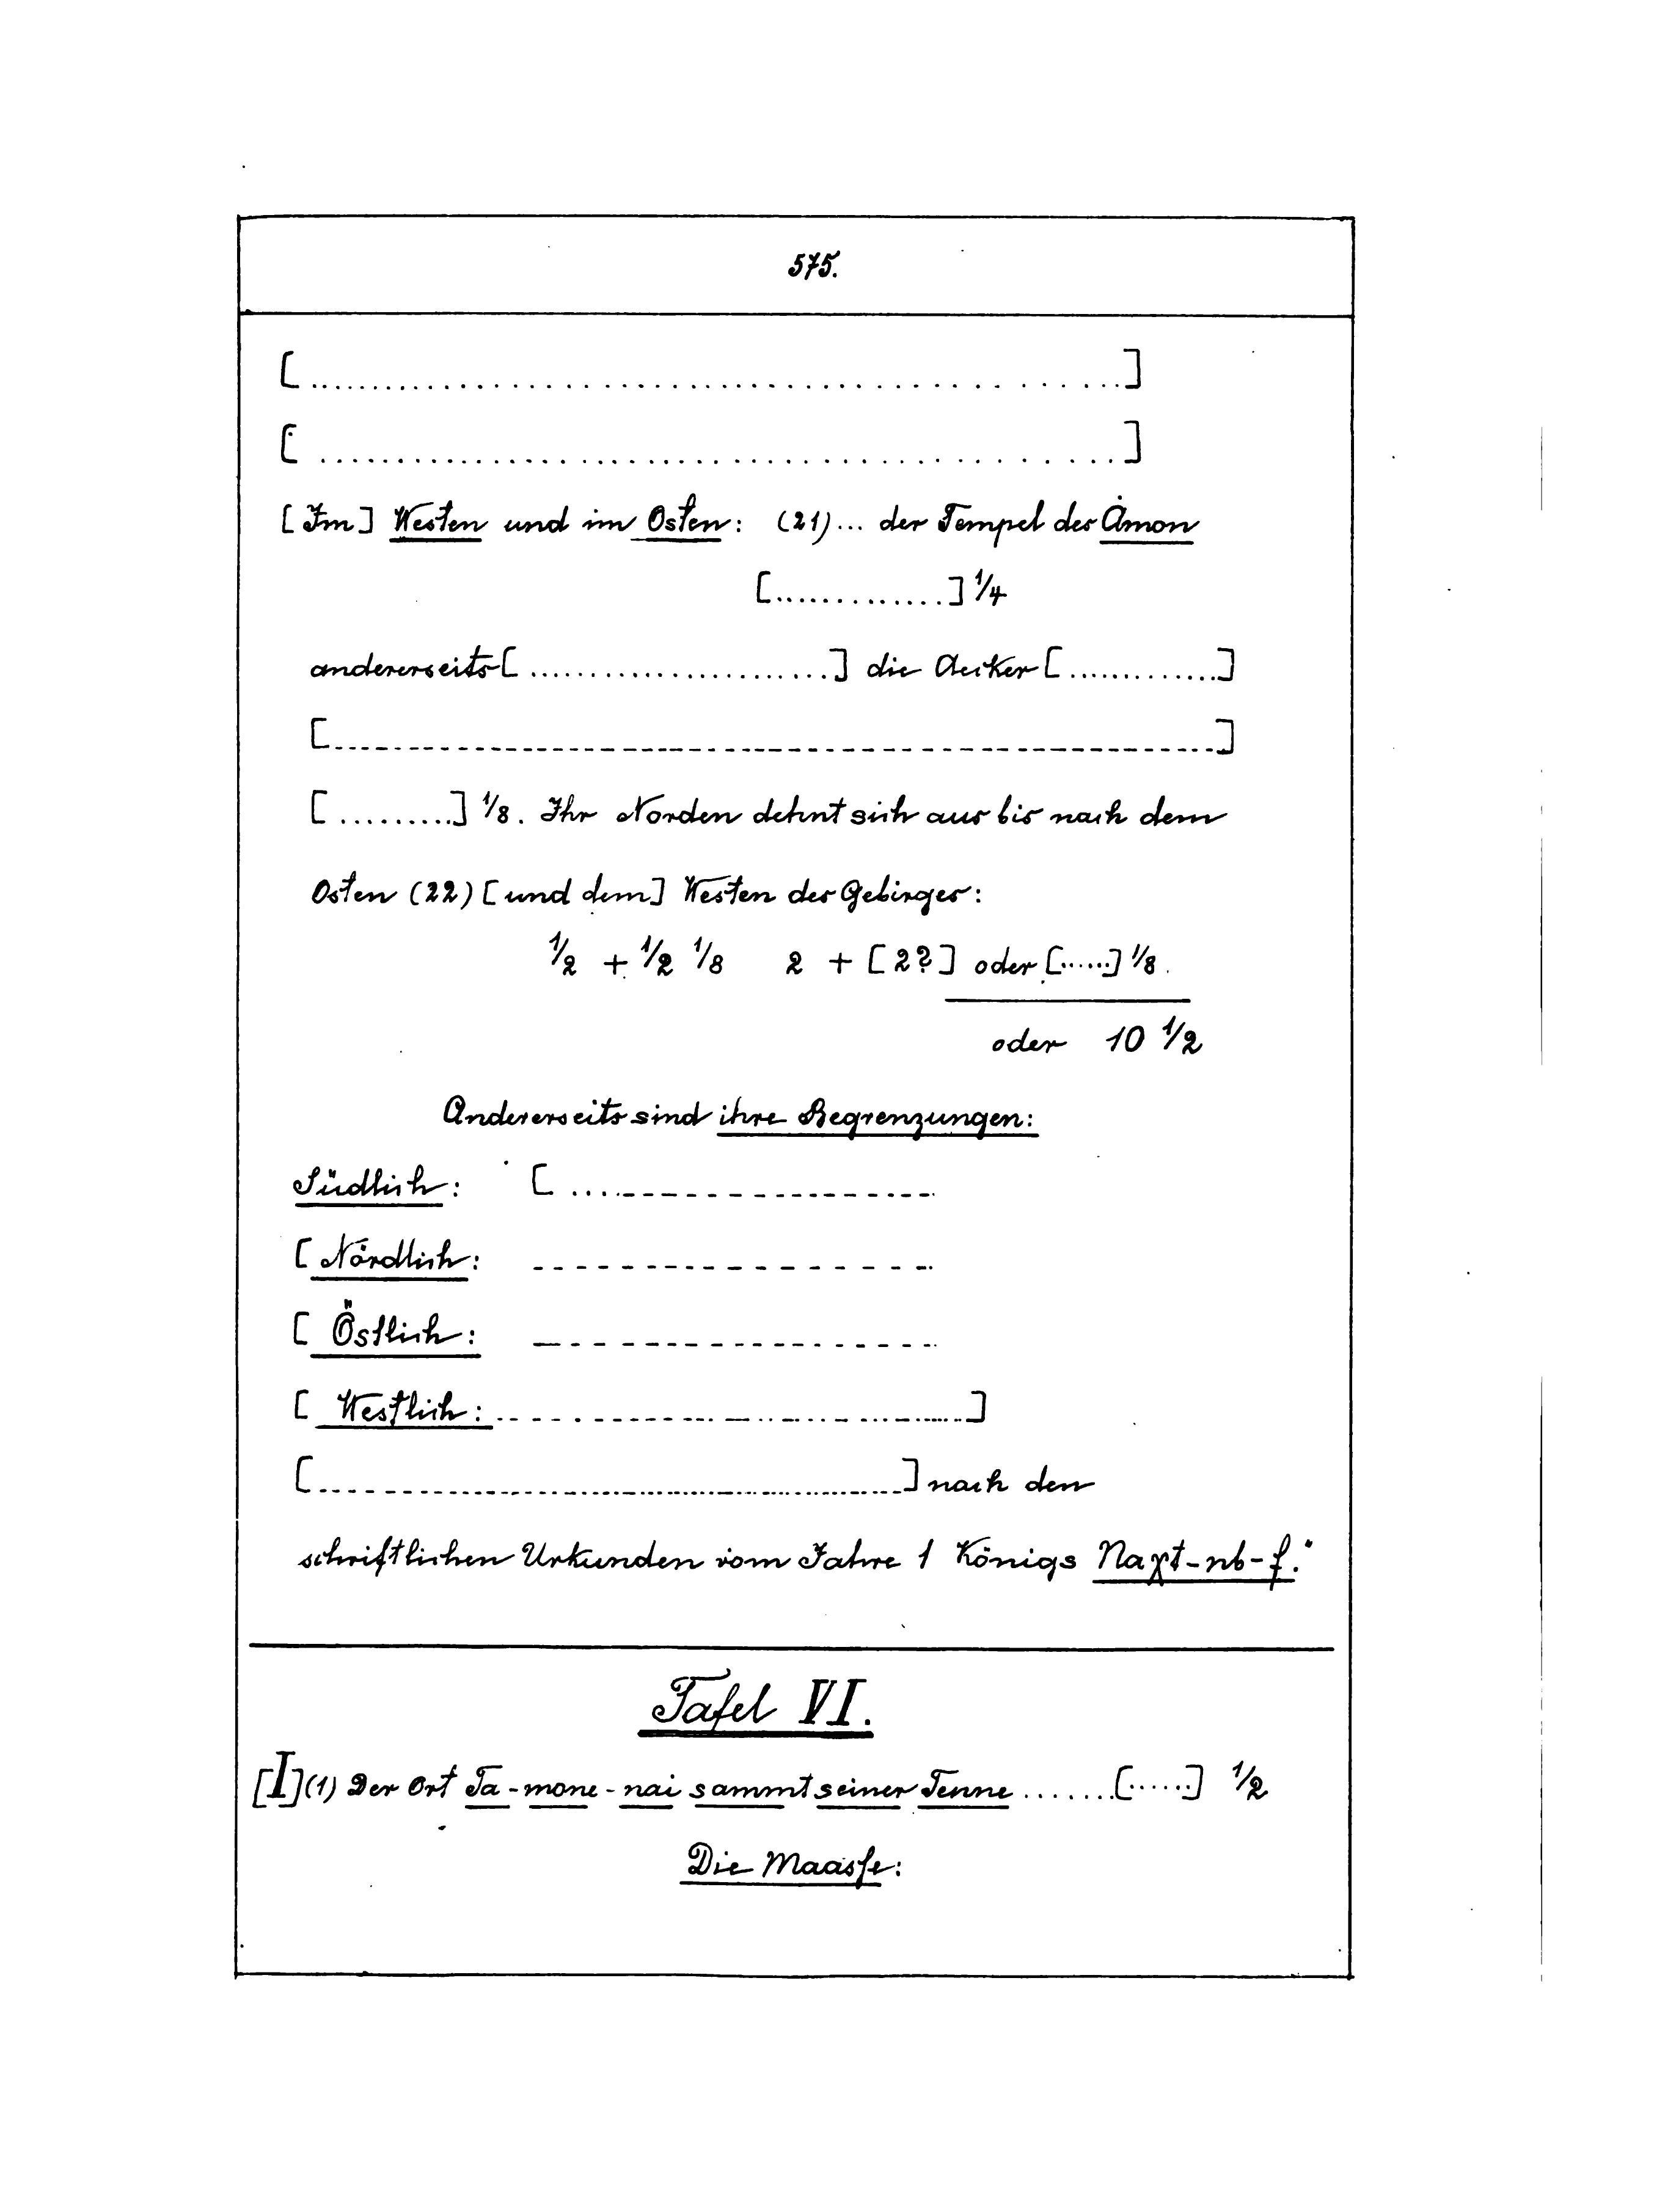 575.
[......................................................]
[......................................................]
[Im] Westen und im Osten: (21)... der Tempel des Ȧmon
[..............] 1/4
andererseits [........................] die Aecker [.............]
[------------------------------------------------------]
[..........] 1/8. Ihr Norden dehnt sich aus bis nach dem
Osten (22) [und dem] Westen des Gebirges:
1/2 + 1/2 1/8 2 + [2?] oder [......] 1/8.
oder 10 1/2
Andererseits sind ihre Begrenzungen:
Südlich: [ ....--------------------
[Nördlich: --------------------
[Östlich: --------------------
[Westlich: ------------------------------]
[----------------------------------------] nach den
schriftlichen Urkunden vom Jahre 1 Königs Naχt-nb-f."
Tafel VI.
[I] (1) Der Ort Ta-mone-nai sammt seiner Tenne .......[......] 1/2
Die Maasse: